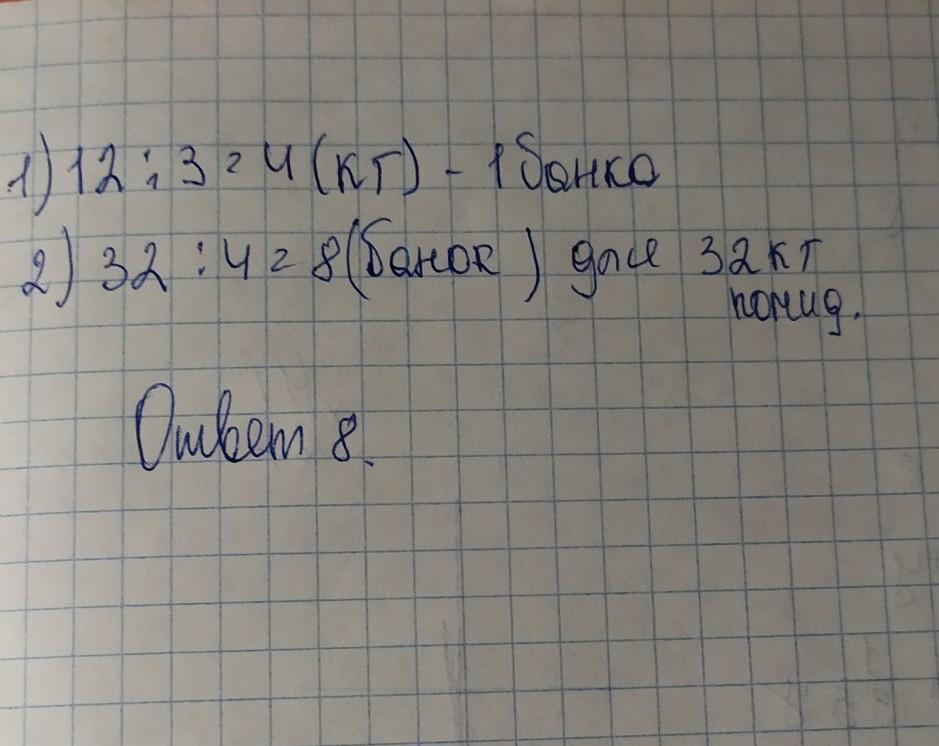 1) 12 : 3 = 4 (кг) - 1 банка
2) 32 : 4 = 8 (банок) для 32 кг
помид.
Ответ 8.